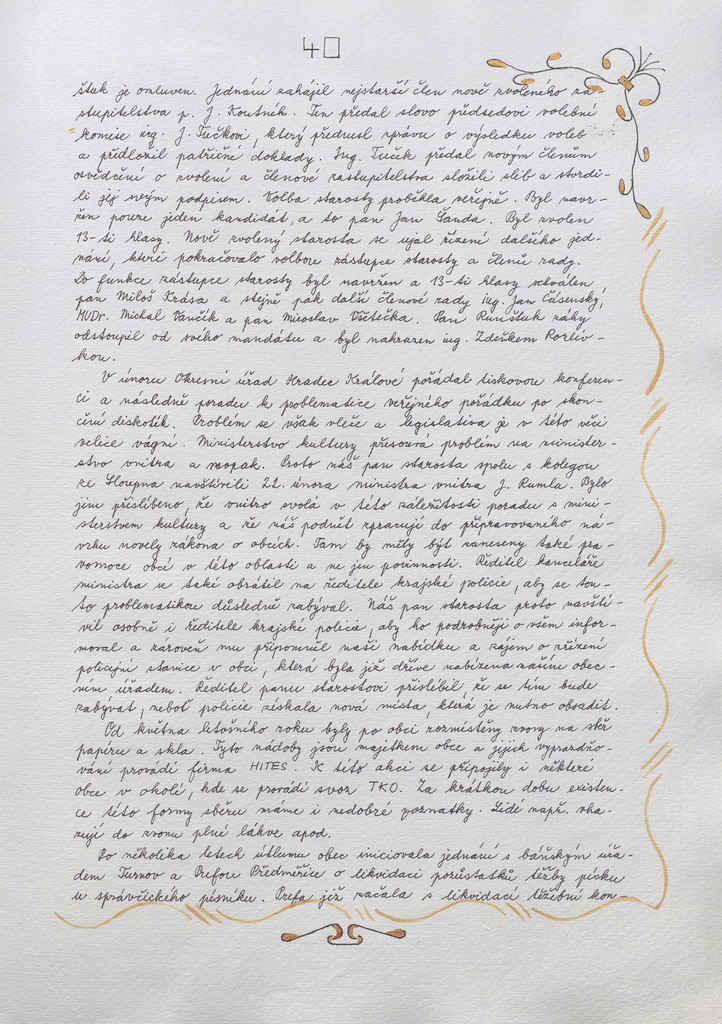 40
štuk je omluven. Jednání zahájil nejstarší člen nově zvoleného za-
stupitelstva p. J. Koutník. Ten předal slovo předsedovi volební
komise ing. J. Tučkovi, který přednesl zprávu o výsledku voleb
a předložil patřičné doklady. Ing. Tuček předal novým členům
osvědčení o zvolení a členové zastupitelstva složili slib a stvrdi-
li jej svým podpisem. Volba starosty proběhla veřejně. Byl navr-
žen pouze jeden kandidát, a to pan Jan Šanda. Byl zvolen
13-ti hlasy. Nově zvolený starosta se ujal řízení dalšího jed-
nání, které pokračovalo volbou zástupce starosty a členů rady.
Do funkce zástupce starosty byl navržen a 13-ti hlasy schválen
pan Miloš Krása a stejně pak další členové rady ing. Jan Čásenský,
MUDr. Michal Vančík a pan Miroslav Všetečka. Pan Runštuk záhy
odstoupil od svého mandátu a byl nahrazen ing. Zdeňkem Rozlív-
kou.
V únoru Okresní úřad Hradec Králové pořádal tiskovou konferen-
ci a následně poradu k problematice veřejného pořádku po skon-
čení diskoték. Problém se však vleče a legislativa je v této věci
velice vágní. Ministerstvo kultury přesouvá problém na minister-
stvo vnitra a naopak. Proto náš pan starosta spolu s kolegou
ze Sloupna navštívili 22. února ministra vnitra J. Rumla. Bylo
jim přislíbeno, že vnitro svolá v této záležitosti poradu s mini-
sterstvem kultury a že náš podnět zpracují do připravovaného ná-
vrhu novely zákona o obcích. Tam by měly být zaneseny také pra-
vomoce obcí v této oblasti a ne jen povinnosti. Ředitel kanceláře
ministra se také obrátil na ředitele krajské policie, aby se tou-
to problematikou důsledně zabýval. Náš pan starosta proto navští-
vil osobně i ředitele krajské policie, aby ho podrobněji o všem infor-
moval a zároveň mu připomněl naši nabídku a zájem o zřízení
policejní stanice v obci, která byla již dříve nabízena naším obec-
ním úřadem. Ředitel panu starostovi přislíbil, že se tím bude
zabývat, neboť policie získala nová místa, která je nutno obsadit.
Od května letošního roku byly po obci rozmístěny zvony na sběr
papíru a skla. Tyto nádoby jsou majetkem obce a jejich vyprazdňo-
vání provádí firma HITES. K této akci se připojily i některé
obce v okolí, kde se provádí svoz TKO. Za krátkou dobu existen-
ce této formy sběru máme i nedobré poznatky. Lidé např. vha-
zují do zvonu plné láhve apod.
Po několika letech útlumu obec iniciovala jednání s báňským úřa-
dem Turnov a Prefou Předměřice o likvidaci pozůstatků těžby písku
u správčického písníku. Prefa již začala s likvidací těžební kon-